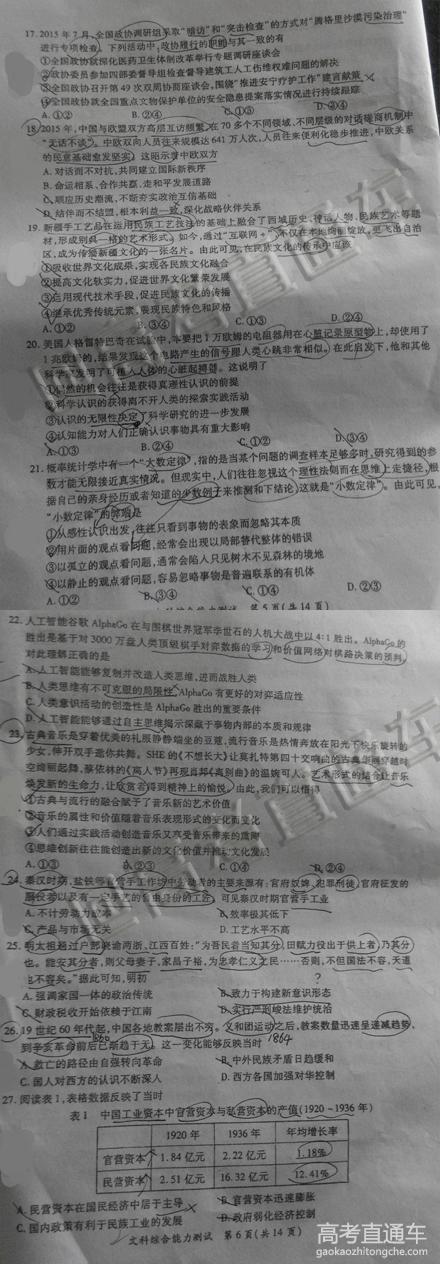 17. 2015年7月,全国政协调研组采取“暗访”和“突击检查”的方式对“腾格里沙漠污染治理”
进行专项检查。下列活动中,政协履行的职能与其一致的有
①全国政协就深化医药卫生体制改革举行专题调研座谈会
②政协委员参加四部委督导组检查督导建筑工人工伤维权难问题的解决
③全国政协召开第49次双周协商座谈会,围绕“推进安宁疗护工作”建言献策
④全国政协就全国重点文物保护单位的安全隐患提案落实情况进行持续跟踪
A. ①② B. ①③ C. ②④ D. ③④
18. 2015年,中国与欧盟双方高层互访频繁,在70多个不同领域、不同层级的对话磋商机制中
“无话不谈”。中欧双向人员往来规模达641万人次,人员往来便利化稳步推进,中欧关系
的民意基础愈发坚实。这昭示着中欧双方
A. 对话而不对抗,共同建立国际新秩序
B. 命运相系、合作共赢,走和平发展道路
C. 顺应历史潮流,不断夯实政治互信基础
D. 结伴而不结盟,根本利益一致,深化战略伙伴关系
19. 新疆手工艺品在运用民族工艺技法的基础上融合了西域历史、神话人物、民族艺术等题
材,形成别具一格的艺术形式。如今,通过“互联网+”,不仅在本地绚丽绽放,更飞出自治
区,成为传播新疆文化的一张名片。由此可见,在民族文化的传承中应该
①吸收世界文化成果,实现各民族文化融合
②提高文化软实力,促进世界文化繁荣发展
③启用现代技术手段,促进民族文化的传播
④继承优秀传统元素,展现民族特色和风格
A. ①② B. ②④ C. ①③ D. ③④
20. 美国人格雷特巴奇在试验中,本要把1万欧姆的电阻器用在心脏记录原型物上,却使用了
1兆欧姆的,结果发现这个电路产生的信号跟人类心跳非常相似。在此启发下,他和其他
科学家发明了可植入人体的心脏起搏器。这说明了
①偶然的机会往往是获得真理性认识的前提
②科学认识的获得离不开人类的探索实践活动
③认识的无限性决定了科学研究的进一步发展
④认知能力对人们正确认识事物具有重大影响
A. ①③ B. ②④ C. ①② D. ③④
21. 概率统计学中有一个“大数定律”,指的是当某个问题的调查样本足够多时,研究得到的参
数才能无限接近真实情况。但现实中,人们往往忽视这个理性法则而在思维上走捷径,根
据自己的亲身经历或者知道的少数例子来推测和下结论,这就是“小数定律”。由此可见,
“小数定律”的弊端是
①从感性认识出发,往往只看到事物的表象而忽略其本质
②用片面的观点看问题,经常会出现以局部替代整体的错误
③以孤立的观点看问题,通常会陷入只见树木不见森林的境地
④以静止的观点看问题,容易忽略事物是普遍联系的有机体
A. ①② B. ③④ C. ①④ D. ②③
文科综合能力测试 第5页(共14页)
22. 人工智能谷歌AlphaGo在与围棋世界冠军李世石的人机大战中以4:1胜出。AlphaGo的
胜出是基于对3000万盘人类顶级棋手对弈数据的学习和价值网络对棋路决策的预判。
对此理解正确的是
A. 人工智能能够复制并改造人类思维,进而战胜人类
B. 人类思维有不可克服的局限性,AlphaGo有更好的对弈适应性
C. 人类意识活动的创造性是AlphaGo胜出的重要条件
D. 人工智能能够通过自主思维揭示深藏于事物内部的本质和规律
23. 古典音乐是穿着优美的礼服静静端坐的豆蔻,流行音乐是热情奔放在阳光下快乐旋转的
少女,伸开双手邀你共舞。SHE的《不想长大》让莫扎特第四十交响曲的古典华丽穿越时
空绮丽起舞,蔡依林的《离人节》再现肖邦《离别曲》的温婉可人。艺术形式的结合让音乐
焕发新的生命力,让欣赏者得到精神上的愉悦。由此,我们可以懂得
①古典与流行的融合赋予了音乐新的艺术价值
②音乐的属性和价值随着音乐表现形式的变化而变化
③人们通过实践活动创造音乐又享受音乐带来的愉悦
④思维创新往往能创造出新的文化价值并推动文化发展
A. ①③ B. ②③ C. ①④ D. ②④
24. 秦汉时期,盐铁等官营手工作坊中劳动者的主要来源有:官府奴婢、犯罪刑徒、官府征发的
服役者以及有一定手艺的自由身份的工匠。可见秦汉时期官营手工业
A. 不计劳动力成本 B. 效率极其低下
C. 产品与市场无关 D. 工艺水平不高
25. 明太祖通过户部晓谕两浙、江西百姓:“为吾民者当知其分,田赋力役出于供上者,乃其分
也。能安其分者,则父母妻子,家昌子裕,为忠孝仁义之民……否则,不但国法不容,天道
也不容矣。”据此可知,明初
A. 强调家国一体的政治传统 B. 致力于构建新意识形态
C. 财政税收开始依赖于江南 D. 实行严刑峻法维护统治
26. 19世纪60年代起,中国各地教案层出不穷。义和团运动之后,教案数量迅速呈递减趋势,
到辛亥革命前后已渐趋于无。这一变化能够反映当时
1860 1864
A. 救亡的路径由自强转向革命 B. 中外民族矛盾日趋缓和
C. 国人对西方的认识不断深入 D. 西方各国加强对华控制
27. 阅读表1,表格数据反映了当时
表1 中国工业资本中官营资本与私营资本的产值(1920~1936年)
1920年 1936年 年均增长率
官营资本 1.84亿元 2.22亿元 1.18%
民营资本 2.51亿元 16.32亿元 12.41%
A. 民营资本在国民经济中居于主导 B. 官营资本迅速膨胀
C. 国内政策有利于民族工业的发展 D. 政府弱化经济控制
文科综合能力测试 第6页(共14页)
高考直通车
gaokaozhitongche.com